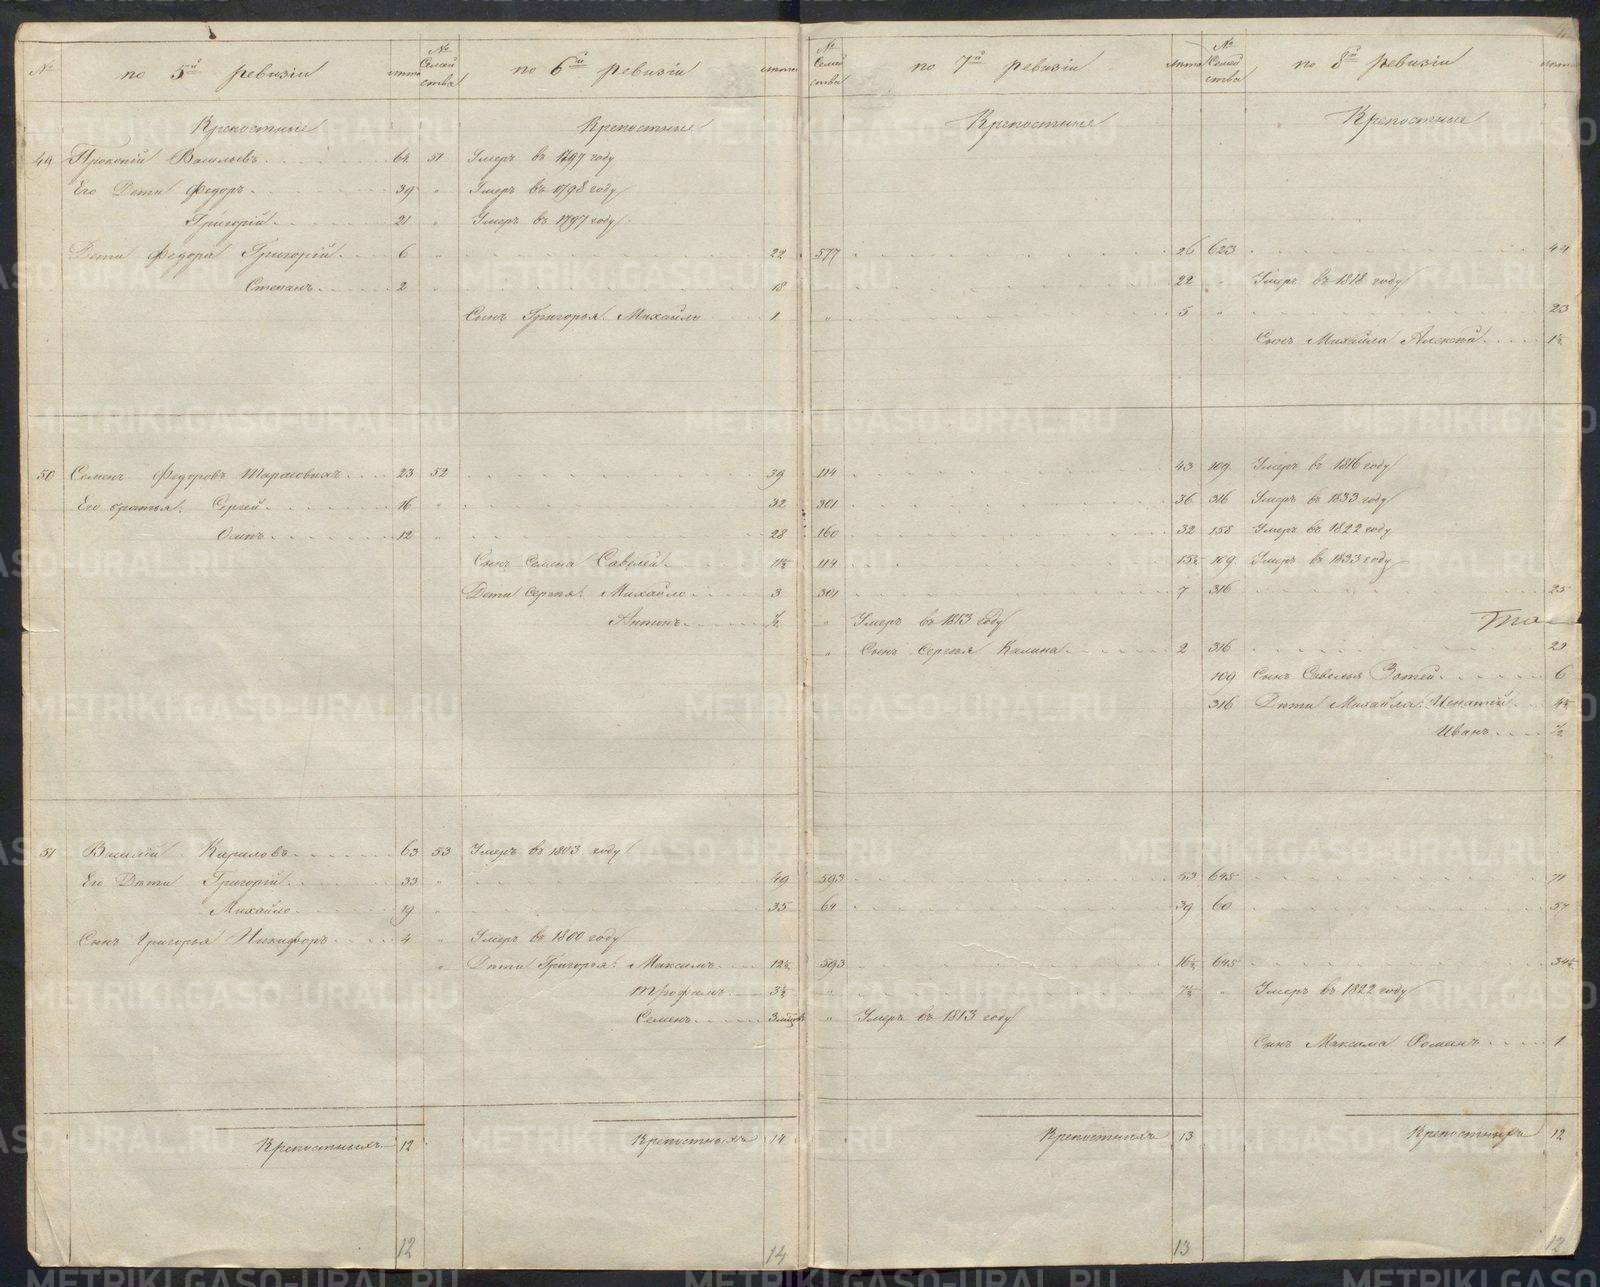 № по 5й ревизіи лѣта № Семейства по 6й ревизіи лѣта № Семейства по 7й ревизіи лѣта № Семейства по 8й ревизіи лѣта
Крепостные Крепостные Крепостные Крепостные
49 Васильевъ 64 51 Умеръ въ 1797 году
Его Дети Федоръ 39 " Умеръ въ 1798 году
Григорій 21 " Умеръ въ 1797 году
Дети Федора Григорій 6 " 22 577 26 623 44
Степанъ 2 " 18 22 " Умеръ въ 1818 году
Сынъ Григорья Михайло 1 " 5 " 23
Сынъ Михайла Алексѣй 1½
50 Семенъ Федоровъ Тарасовыхъ 23 52 39 114 43 109 Умеръ въ 1816 году
Его братья: Сергей 16 " 32 301 36 316 Умеръ въ 1833 году
Осипъ 12 " 28 160 32 158 Умеръ въ 1822 году
Сынъ Семена Савелей 11½ 114 15½ 109 Умеръ въ 1833 году
Дети Сергѣя: Михайло 3 301 7 316 25
Антонъ ½ " Умеръ въ 1813 году
" Сынъ Сергѣя Калина 2 316 29
109 Сынъ Савелья Зотей 6
316 Дѣти Михайла: Игнатій 4½
Иванъ ½
51 Василій Кириловъ 63 53 Умеръ въ 1803 году
Его Дѣти Григорій 33 " 49 593 53 645 71
Михайло 19 " 35 64 39 60 57
Сынъ Григорья Никифоръ 4 " Умеръ въ 1800 году
" Дѣти Григорья: Максимъ 12½ 593 16½ 645 34½
Трофимъ 3½ " 7½ " Умеръ въ 1822 году
Семенъ 3 " Умеръ въ 1813 году
Сынъ Максима Романъ 1
Крепостныхъ 12 Крепостныхъ 14 Крепостныхъ 13 Крепостныхъ 12
12 14 13 12
METRIKI.GASO-URAL.RU